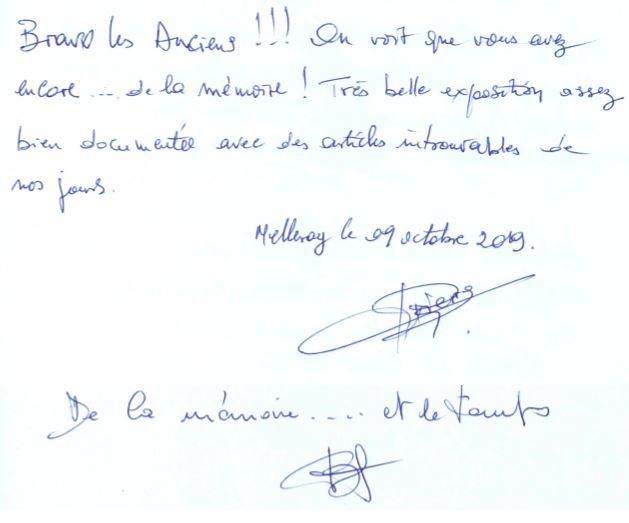 Bravo les Anciens !!! On voit que vous avez
encore .... de la mémoire ! Très belle exposition assez
bien documentée avec des articles introuvables de
nos jours.
Melleray le 09 octobre 2019.
De la mémoire..... et le temps